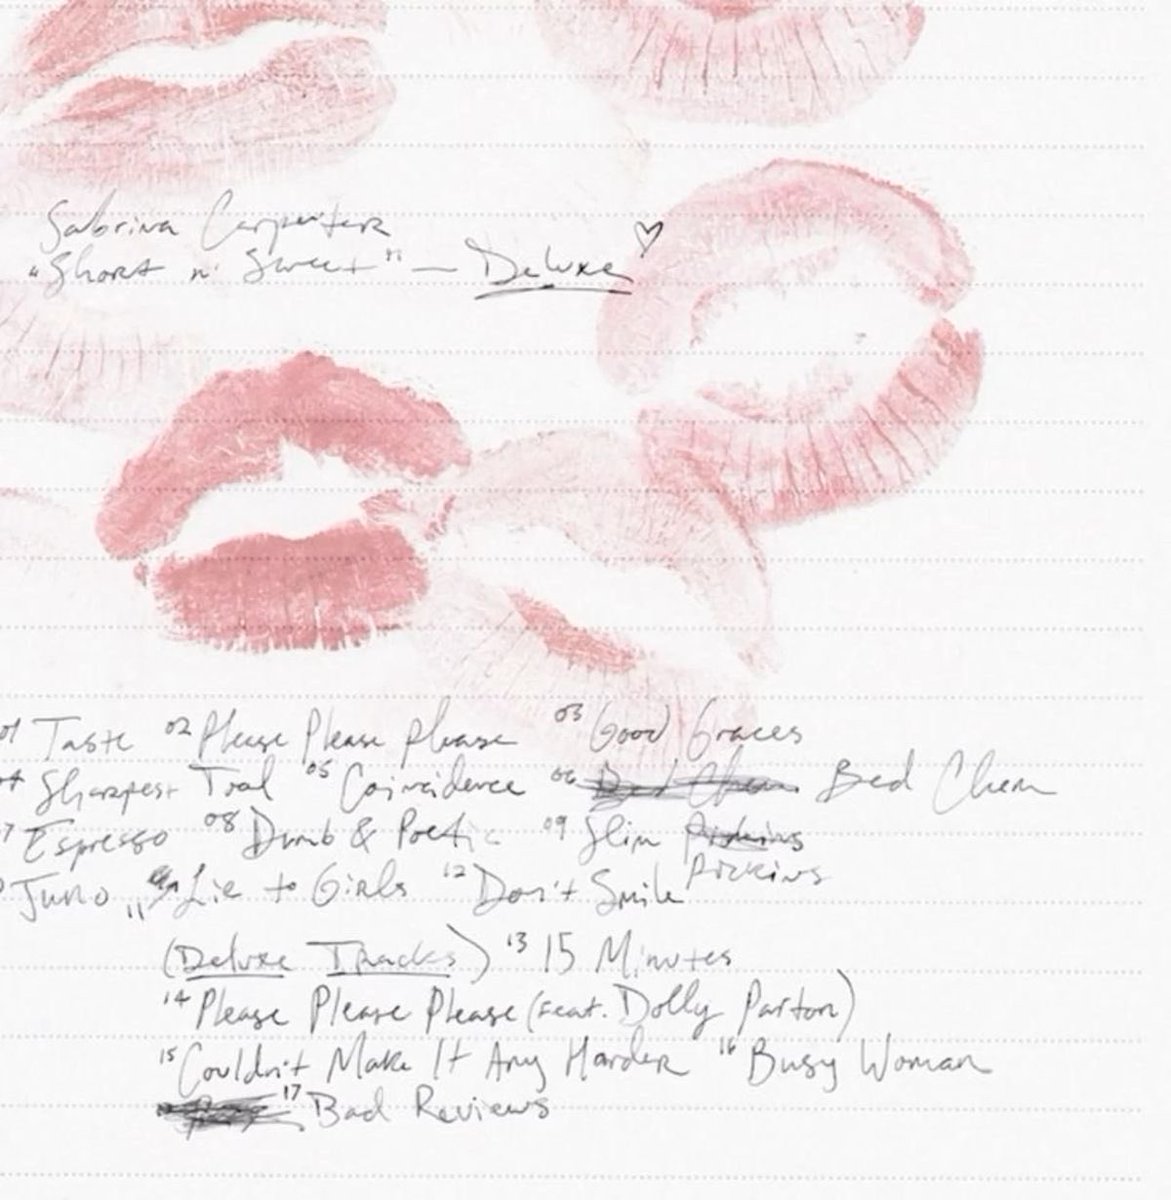 Sabrina Carpenter
"Short n' Sweet" — Deluxe ♡
01 Taste 02 Please Please Please 03 Good Graces
04 Sharpest Tool 05 Coincidence 06 Bed Chem Bed Chem
7 Espresso 08 Dumb & Poetic 09 Slim Pickins
Pickins
0 Juno 11 Lie to Girls 12 Don't Smile
(Deluxe Tracks) 13 15 Minutes
14 Please Please Please (feat. Dolly Parton)
15 Couldn't Make It Any Harder 16 Busy Woman
17 Bad Reviews